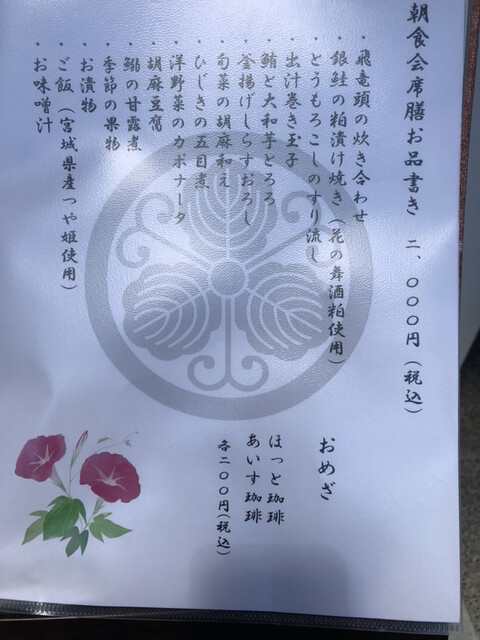 朝食会席膳お品書き 二、〇〇〇円（税込）
・飛竜頭の炊き合わせ
・銀鮭の粕漬け焼き（花の舞酒粕使用）
・とうもろこしのすり流し
・出汁巻き玉子
・鮪と大和芋とろろ
・釜揚げしらすおろし
・旬菜の胡麻和え
・ひじきの五目煮
・洋野菜のカポナータ
・胡麻豆腐
・鰯の甘露煮
・季節の果物
・お漬物
・ご飯（宮城県産つや姫使用）
・お味噌汁
おめざ
ほっと珈琲
あいす珈琲
各二〇〇円（税込）